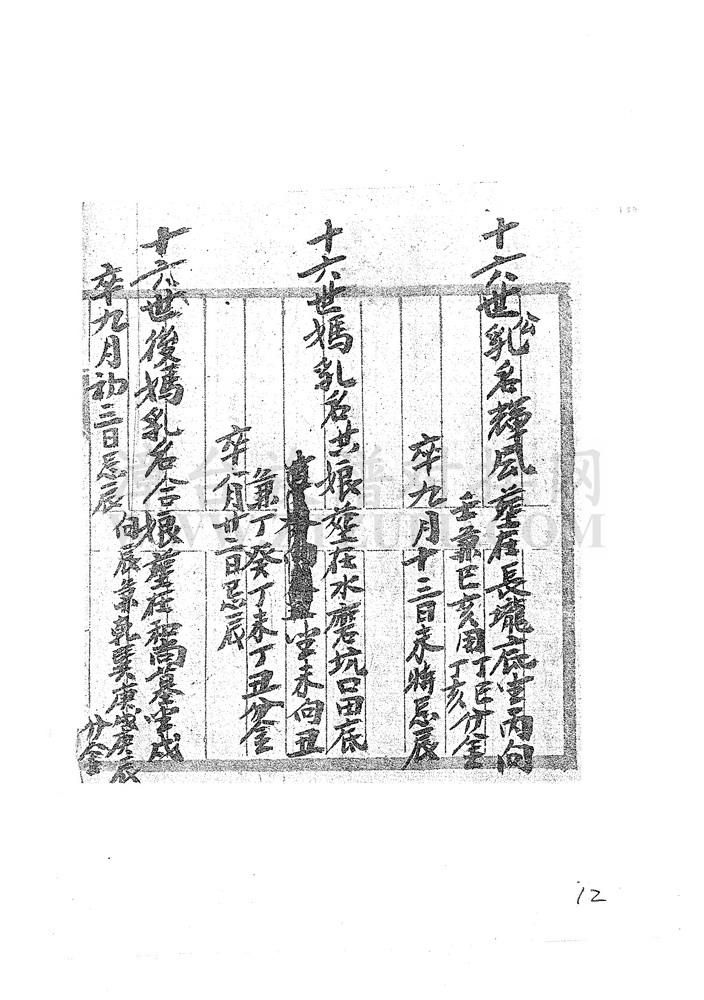 十六世公乳名輝凤塟在長壠底坐丙向
壬兼巳亥用丁巳丁亥分金
卒九月十三日未時忌辰
十六世媽乳名廿娘塟在水磨坑口田底
坐未向丑
兼丁癸丁未丁丑分金
卒一月廿二日忌辰
十六世後媽乳名合娘塟在和尚墓坐戌
向辰兼乾巽庚戌庚辰
分金
卒九月初三日忌辰
12